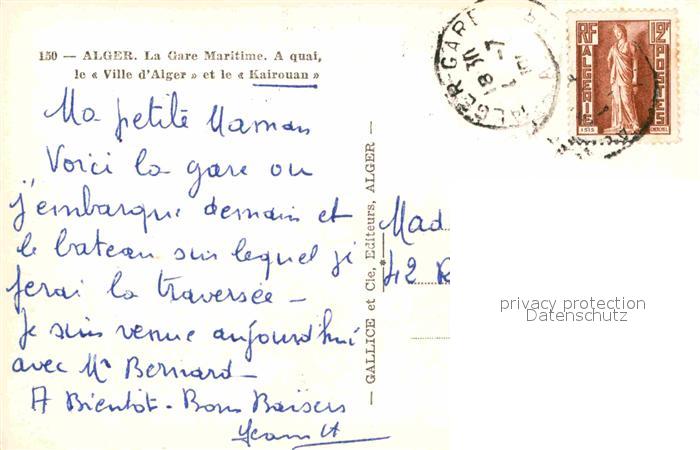 150 — ALGER. La Gare Maritime. A quai,
le « Ville d'Alger » et le « Kairouan »
Ma petite Maman
Voici la gare ou
j'embarque demain et
le bateau sur lequel je
ferai la traversée —
Je suis venue aujourd'hui
avec Mr Bernard —
A Bientôt - Bons Baisers
— GALLICE et Cie, Editeurs, ALGER —
Mad
42 R
ALGER-GARE
18 30
7 - 7
RF
12F
ALGERIE
POSTES
ISIS
CHERCHEL
privacy protection
Datenschutz